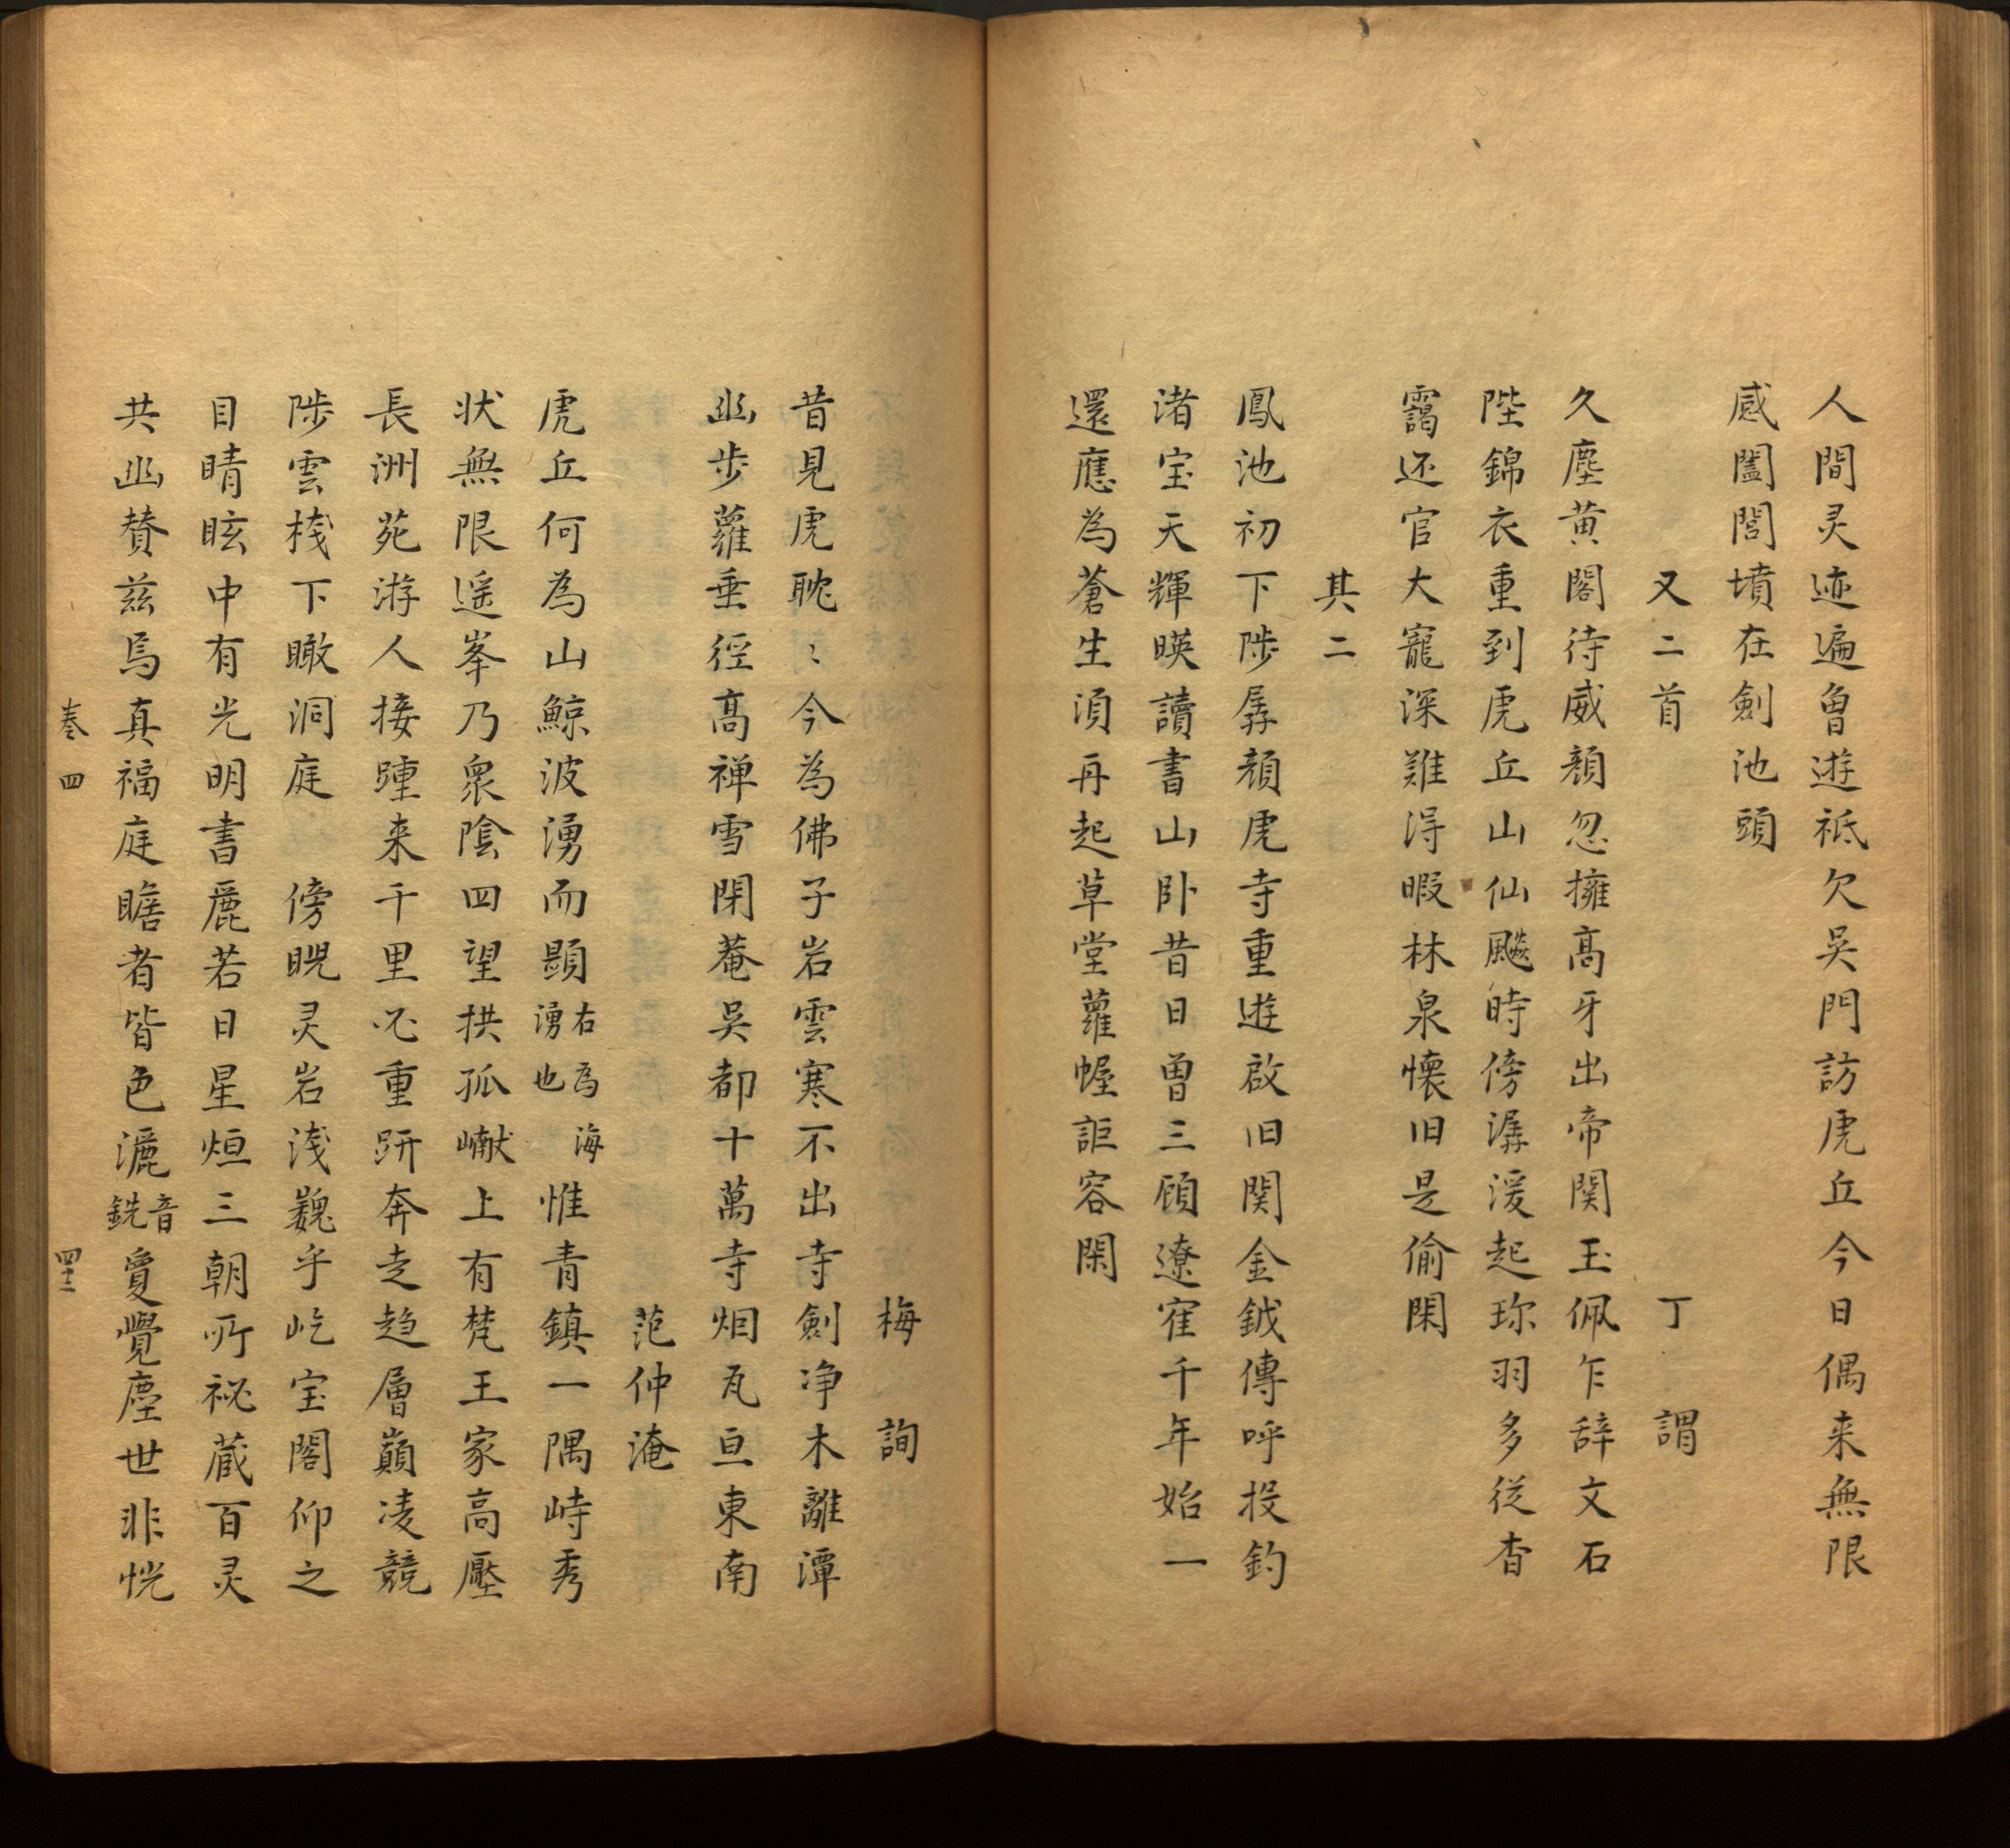 人間灵迹遍曾遊祗欠吴門訪虎丘今日偶来無限
感闔閭墳在劍池頭
又二首 丁謂
久塵黄閣待威顔忽擁高牙出帝関玉佩乍辞文石
陛錦衣重到虎丘山仙飈時傍潺湲起珎羽多從杳
靄还官大寵深難得暇林泉懐旧是偷閑
其二
鳳池初下陟孱顔虎寺重遊啟旧関金鉞傳呼投釣
渚宝天輝暎讀書山卧昔日曾三顧遼寉千年始一
還應為蒼生湏再起草堂蘿幄詎容閑
梅詢
昔見虎眈〻今為佛子岩雲寒不出寺劍净木離潭
幽步蘿垂徑高禅雪閉菴吴都十萬寺烟瓦亘東南
范仲淹
虎丘何為山鯨波湧而顕右為海湧也惟青鎮一隅峙秀
状無限遥峯乃衆陰四望拱孤巘上有梵王家高壓
長洲苑游人接踵来千里必重趼奔走趋層巔凌競
陟雲棧下瞰洞庭 傍晀灵岩浅巍乎屹宝閣仰之
目晴眩中有光明書麗若日星烜三朝所祕蔵百灵
共幽賛兹焉真福庭瞻者皆色灑音銑夐覺塵世非恍
卷四 四十二